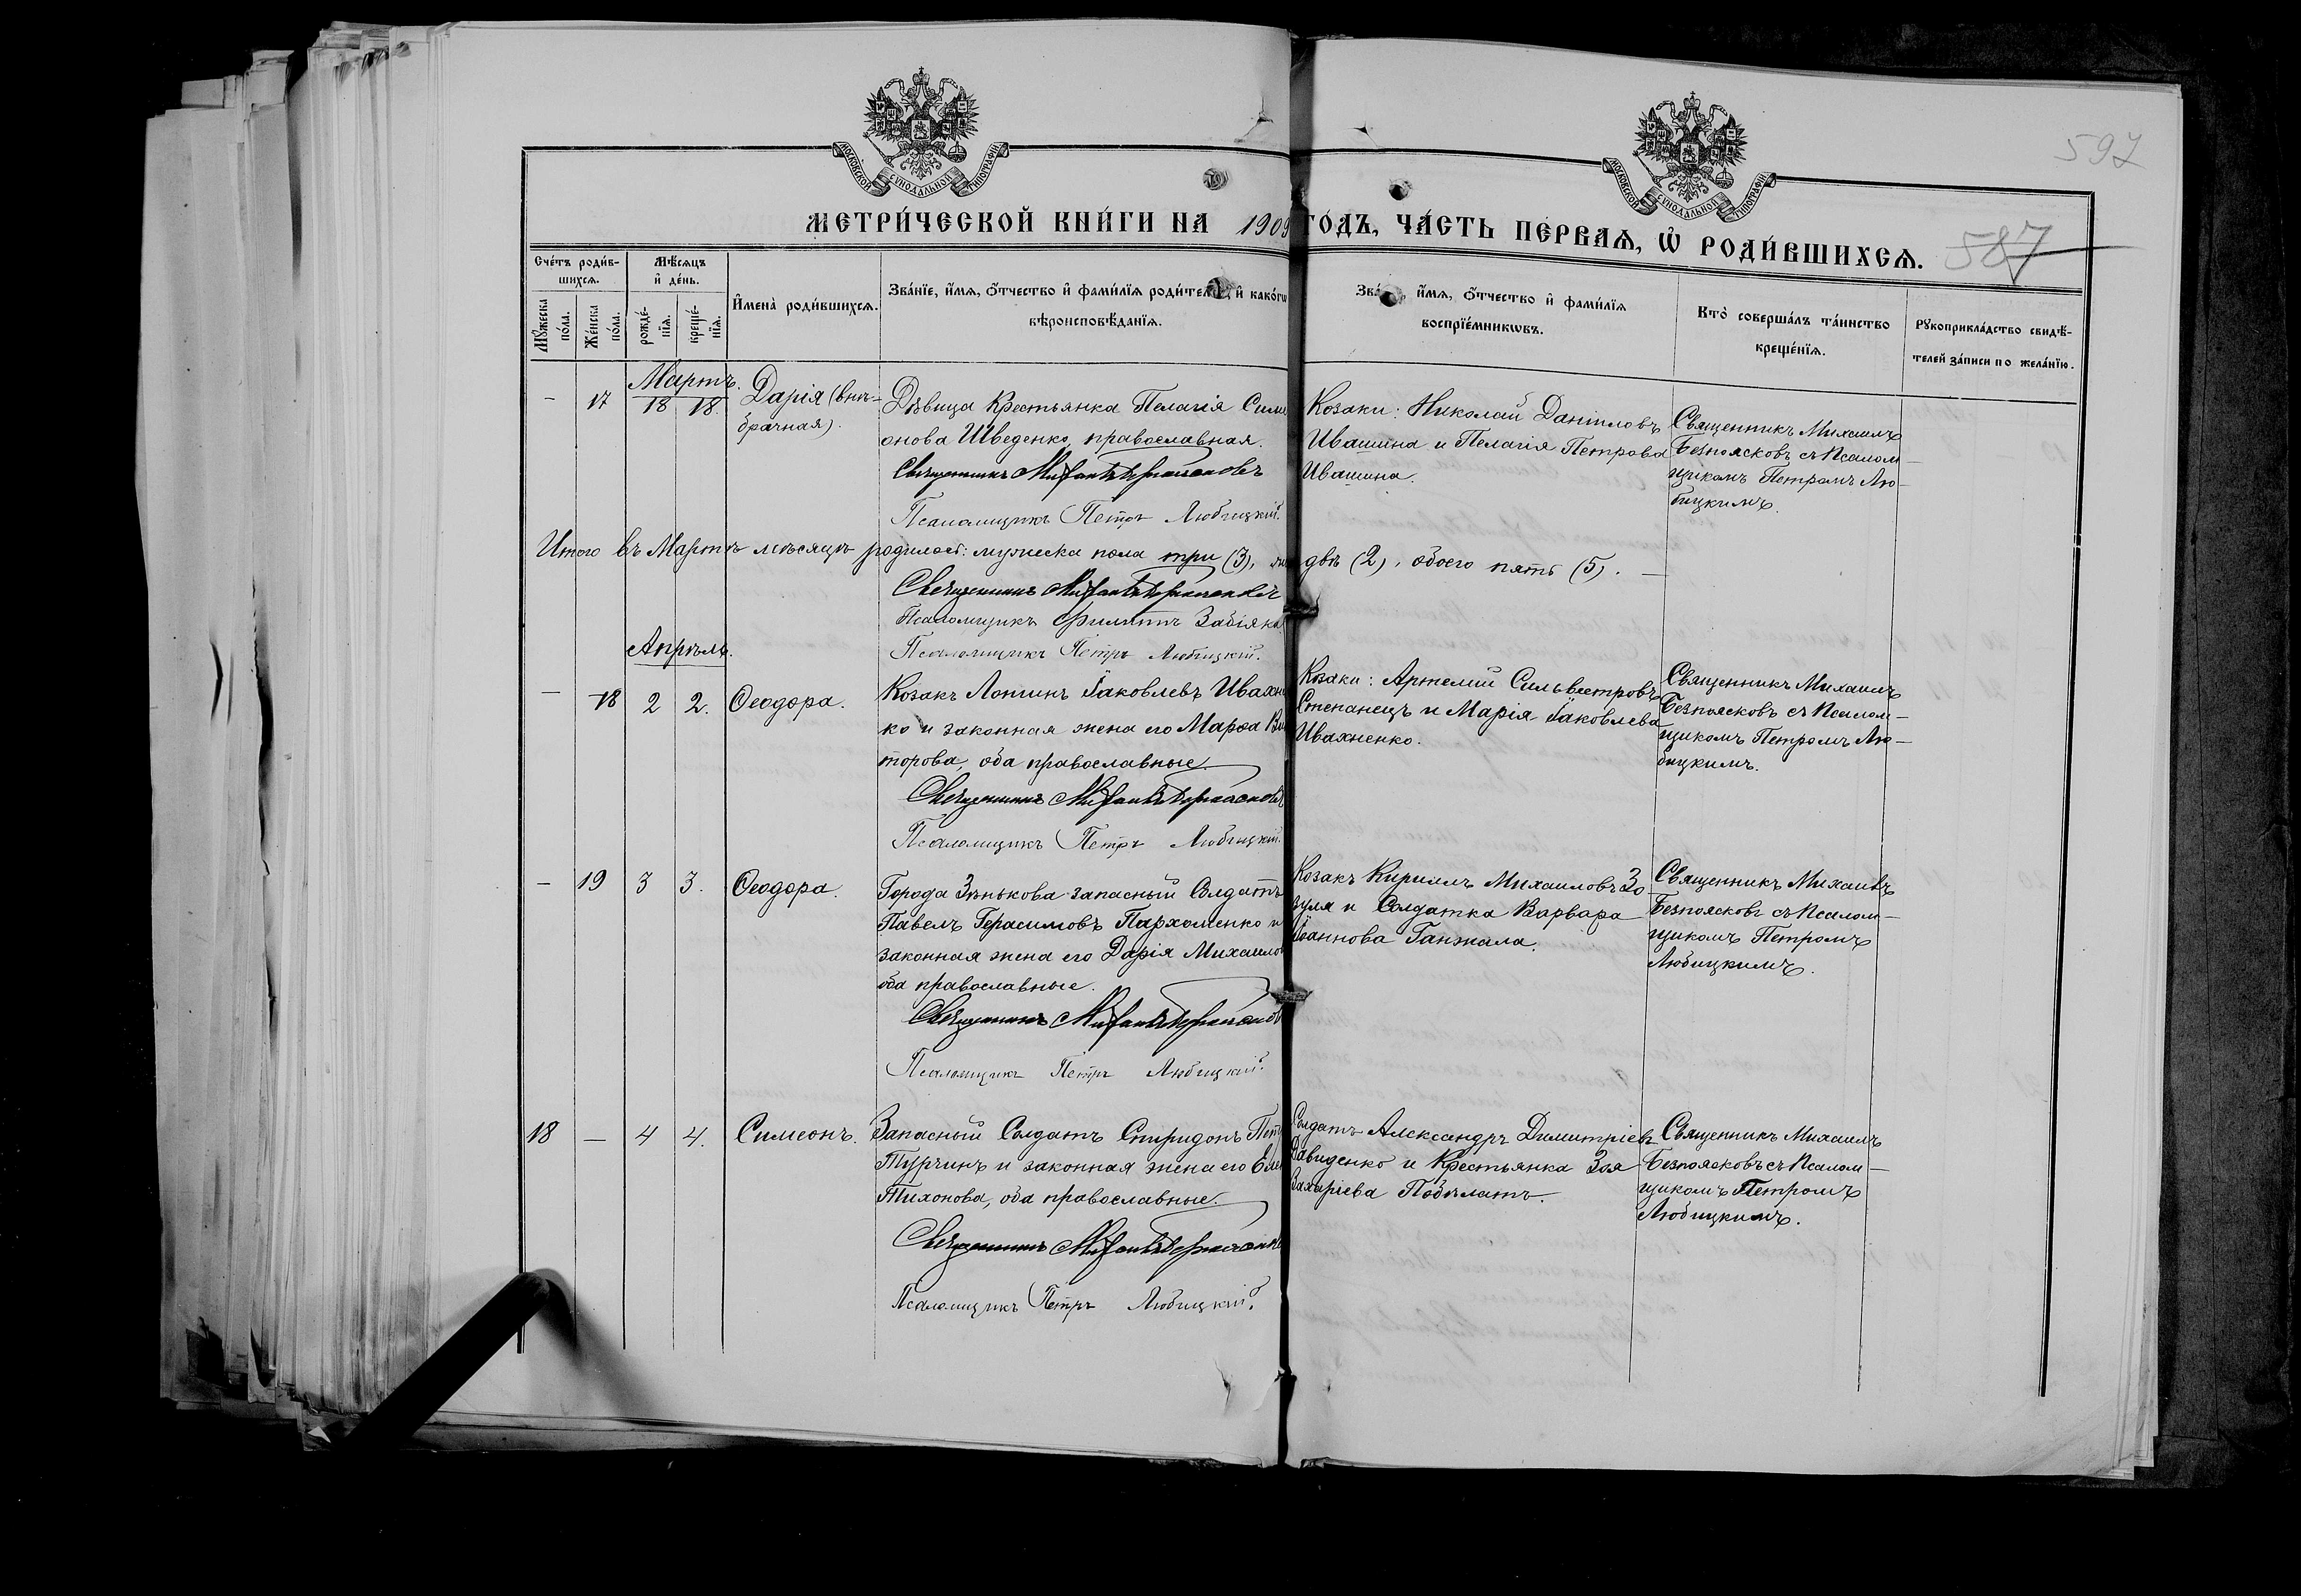 597
МОСКОВСКОЙ СѴНОДАЛЬНОЙ ТИПОГРАФІИ
МОСКОВСКОЙ СѴНОДАЛЬНОЙ ТИПОГРАФІИ
МЕТРИ́ЧЕСКОЙ КНИ́ГИ НА 1909 ГО́ДЪ, ЧА́СТЬ ПЕ́РВАѦ, Ѡ҆ РОДИ́ВШИХСѦ.
587
Сче́тъ роди́в-
шихсѧ.
Мꙋ́жеска по́ла.
Же́нска по́ла.
Мѣ́сѧцъ
и҆ де́нь.
рожде́-
нїѧ.
креще́-
нїѧ.
И҆мена̀ роди́вшихсѧ.
Зва́нїе, и҆́мѧ, ѻ҆́тчество и҆ фами́лїѧ роди́тел и҆ како́гѡ
вѣроисповѣ́данїѧ.
Зва и҆́мѧ, ѻ҆́тчество и҆ фами́лїѧ
воспрїе́мникѡвъ.
Кто̀ соверша́лъ та́инство
креще́нїѧ.
Рꙋкоприкла́дство свидѣ́-
телей за́писи по жела́нїю.
Мартъ.
— 17 18 18. Дарія (внѣ-
брачная).
Дѣвица Крестьянка Пелагія Симе
онова Шведенко, православная.
Священникъ Михаилъ Безпоясковъ
Псаломщикъ Петръ Любицкій.
Козаки: Николай Даніиловъ
Ивашина и Пелагія Петрова
Ивашина.
Священникъ Михаилъ
Безпоясковъ съ Псалом—
щикомъ Петромъ Лю—
бицкимъ.
Итого въ Мартѣ мѣсяцѣ родилось: мужеска пола три (3), двѣ (2), обоего пять (5). —
Священникъ Михаилъ Безпоясковъ
Псаломщикъ Филиппъ Забіяка
Псаломщикъ Петръ Любицкій.
Апрѣль.
— 18 2 2. Ѳеодора.
Козакъ Логинъ Іаковлевъ Ивахне
ко и законная жена его Марѳа Ви
торова, оба православные.
Священникъ Михаилъ Безпоясковъ
Псаломщикъ Петръ Любицкій.
Козаки: Артемій Сильвестровъ
Степанецъ и Марія Іаковлева
Ивахненко.
Священникъ Михаилъ
Безпоясковъ съ Псалом—
щикомъ Петромъ Лю—
бицкимъ.
— 19 3 3. Ѳеодора.
Города Зѣнькова запасный Солдатъ
Павелъ Герасимовъ Пархоменко и
законная жена его Дарія Михаило
оба православные.
Священникъ Михаилъ Безпоясков
Псаломщикъ Петръ Любицкій.
Козакъ Кириллъ Михаиловъ Зо
зуля и Солдатка Варвара
Іоаннова Ганжала.
Священникъ Михаилъ
Безпоясковъ съ Псалом—
щикомъ Петромъ
Любицкимъ.
18 — 4 4. Симеонъ.
Запасный Солдатъ Спиридонъ Пет
Турчинъ и законная жена его Еле
Тихонова, оба православные.
Священникъ Михаилъ Безпоясков
Псаломщикъ Петръ Любицкій.
Солдатъ Александръ Димитріевъ
Давиденко и Крестьянка Зоя
Захаріева Побѣлатъ.
Священникъ Михаилъ
Безпоясковъ съ Псалом—
щикомъ Петромъ
Любицкимъ.